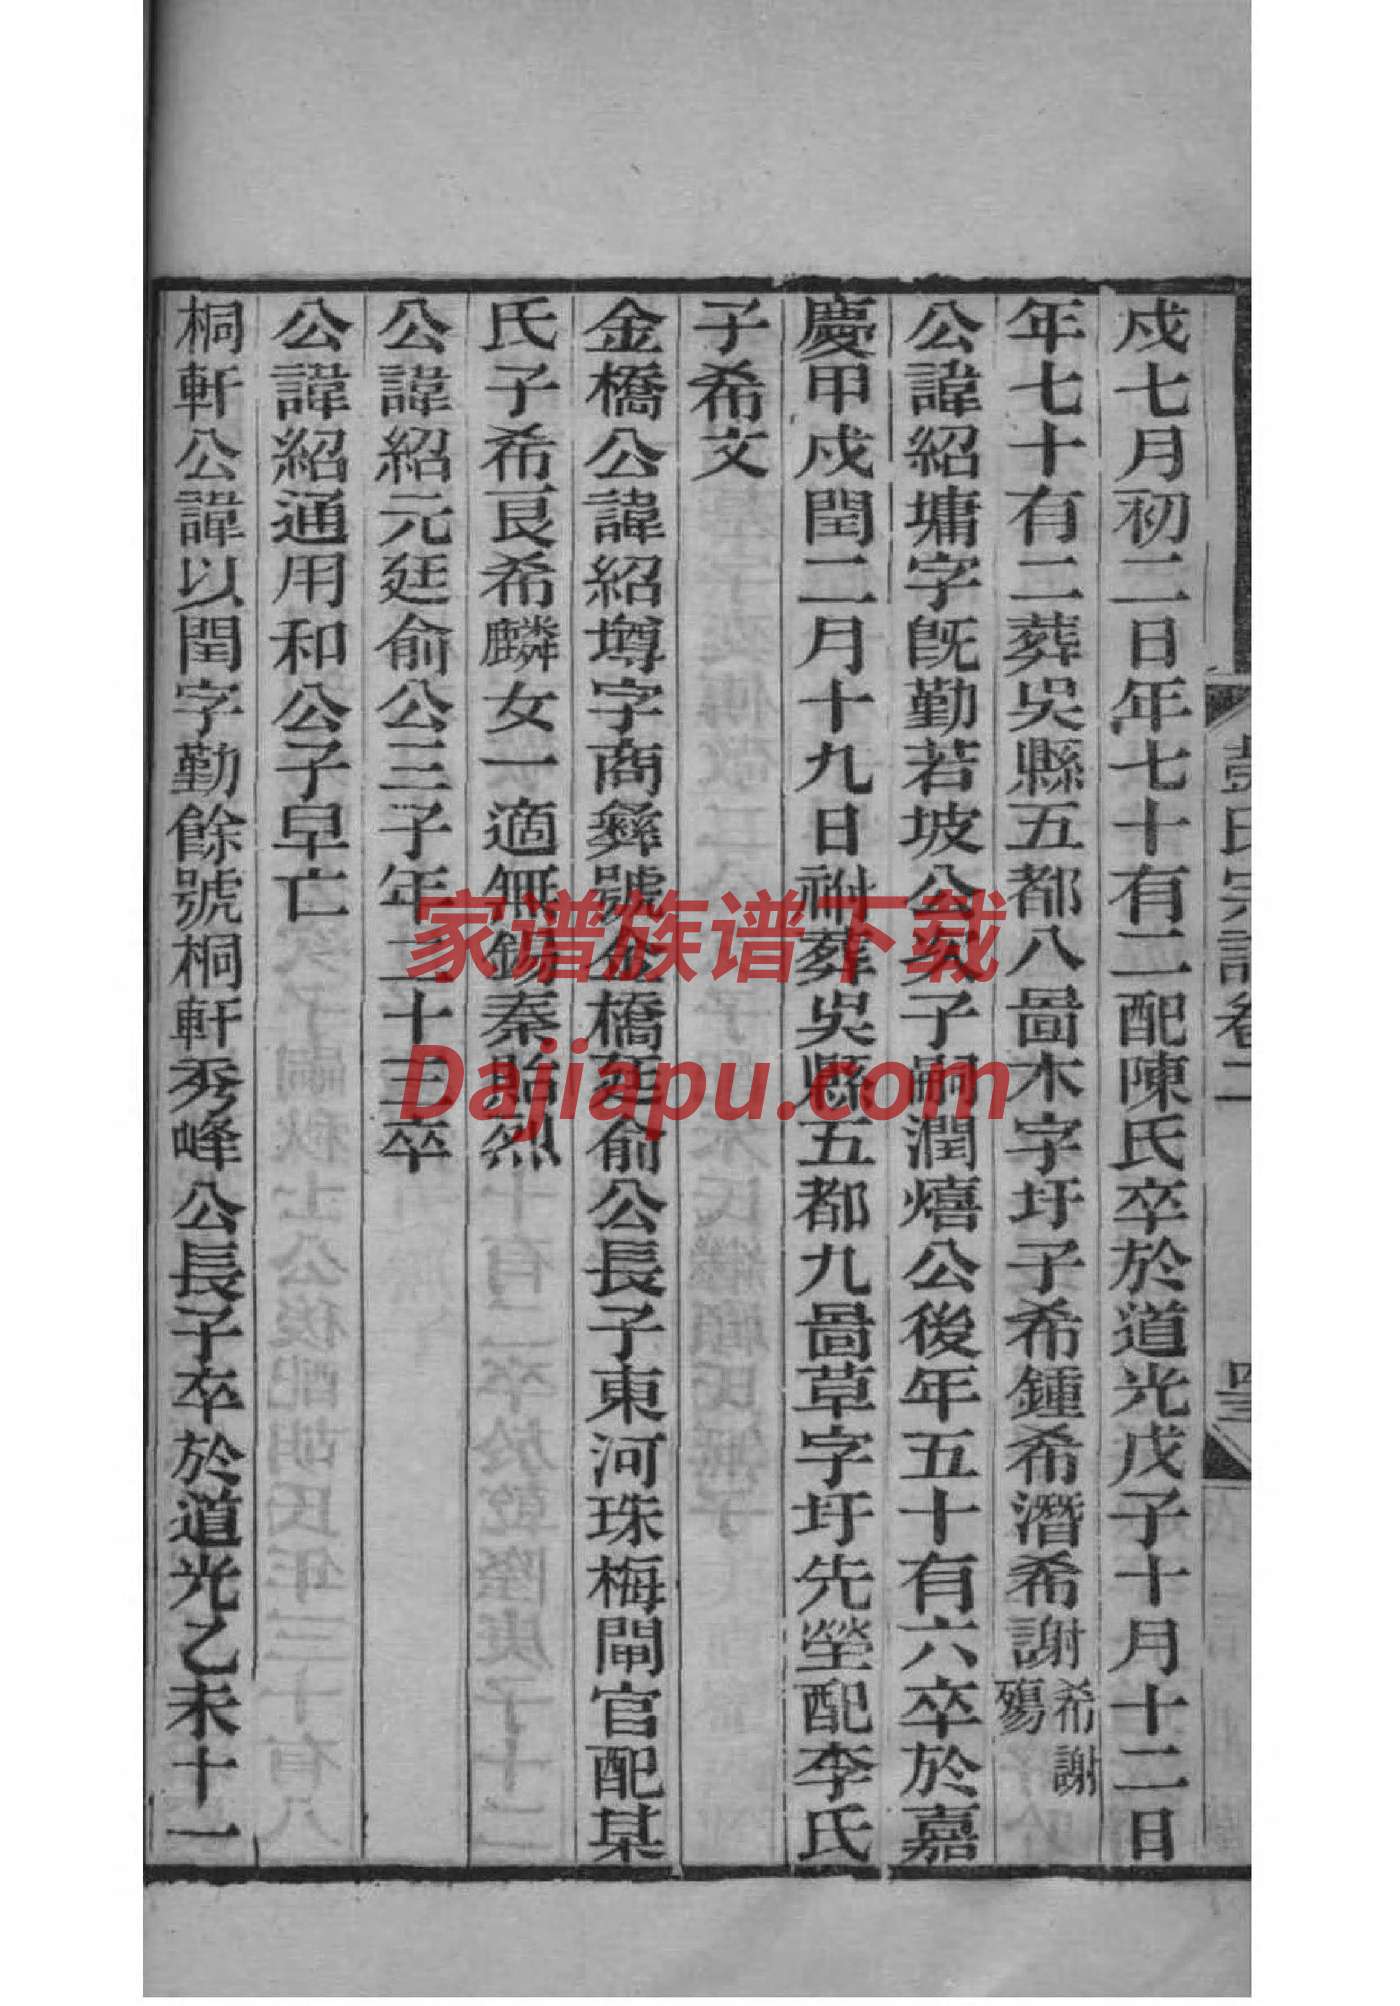 彭氏宗譜卷二
戍七月初二日年七十有二配陳氏卒於道光戊子十月十二日
年七十有二葬吳縣五都八啚木字圩子希鍾希潛希謝希謝殤
公諱紹墉字旣勤若坡公次子嗣潤熺公後年五十有六卒於嘉
慶甲戍閏二月十九日祔葬吳縣五都九啚草字圩先塋配李氏
子希文
金橋公諱紹墫字商彝號金橋廷俞公長子東河珠梅閘官配某
氏子希艮希麟女一適無錫秦貽烈
公諱紹元廷俞公三子年二十三卒
公諱紹通用和公子早亡
桐軒公諱以閏字勤餘號桐軒秀峰公長子卒於道光乙未十一
家谱族谱下载
Dajiapu.com